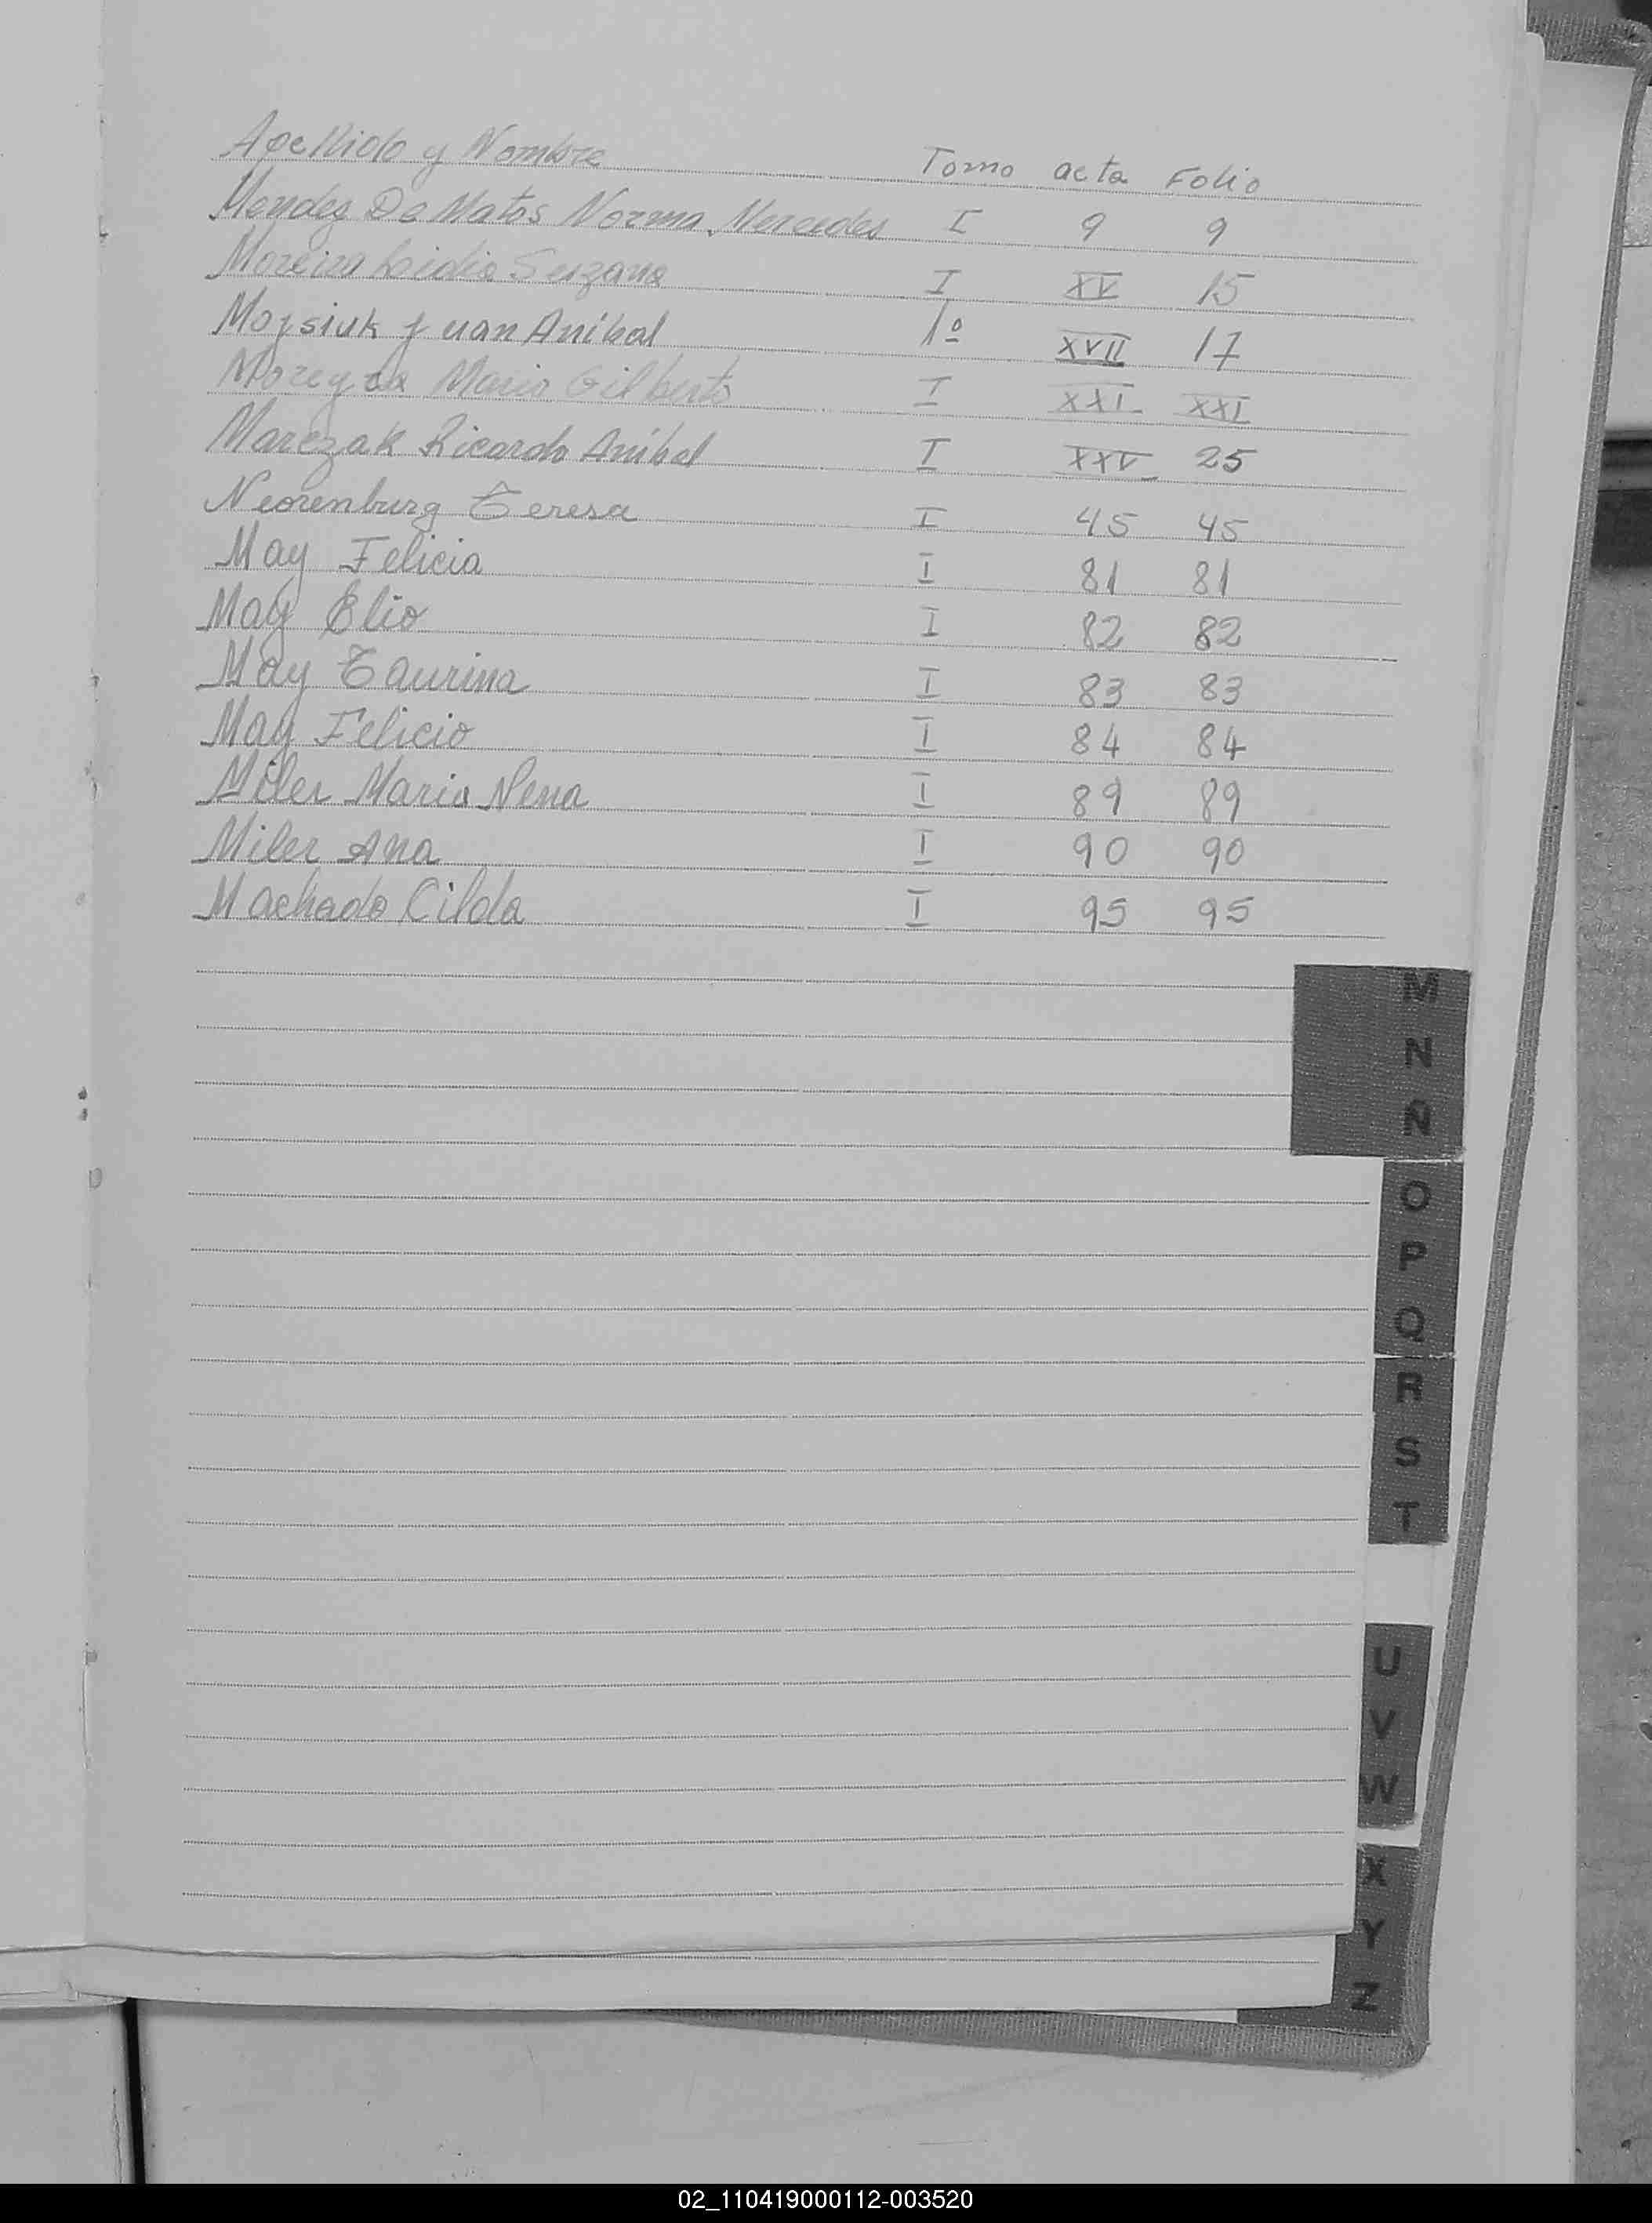 Apellido y Nombre Tomo acta Folio
Mendes De Matos Norma Mercedes I 9 9
Moreira Lidia Suzana I XV 15
Mojsiuk Juan Anibal 1º XVII 17
Moreyra Mario Gilberto I XXI XXI
Marczak Ricardo Anibal I XXV 25
Neorenburg Teresa I 45 45
May Felicia I 81 81
May Elio I 82 82
May Taurina I 83 83
May Felicio I 84 84
Miler Maria Nena I 89 89
Miler Ana I 90 90
Machado Cilda I 95 95
M
N
Ñ
O
P
Q
R
S
T
U
V
W
X
Y
Z
02_110419000112-003520